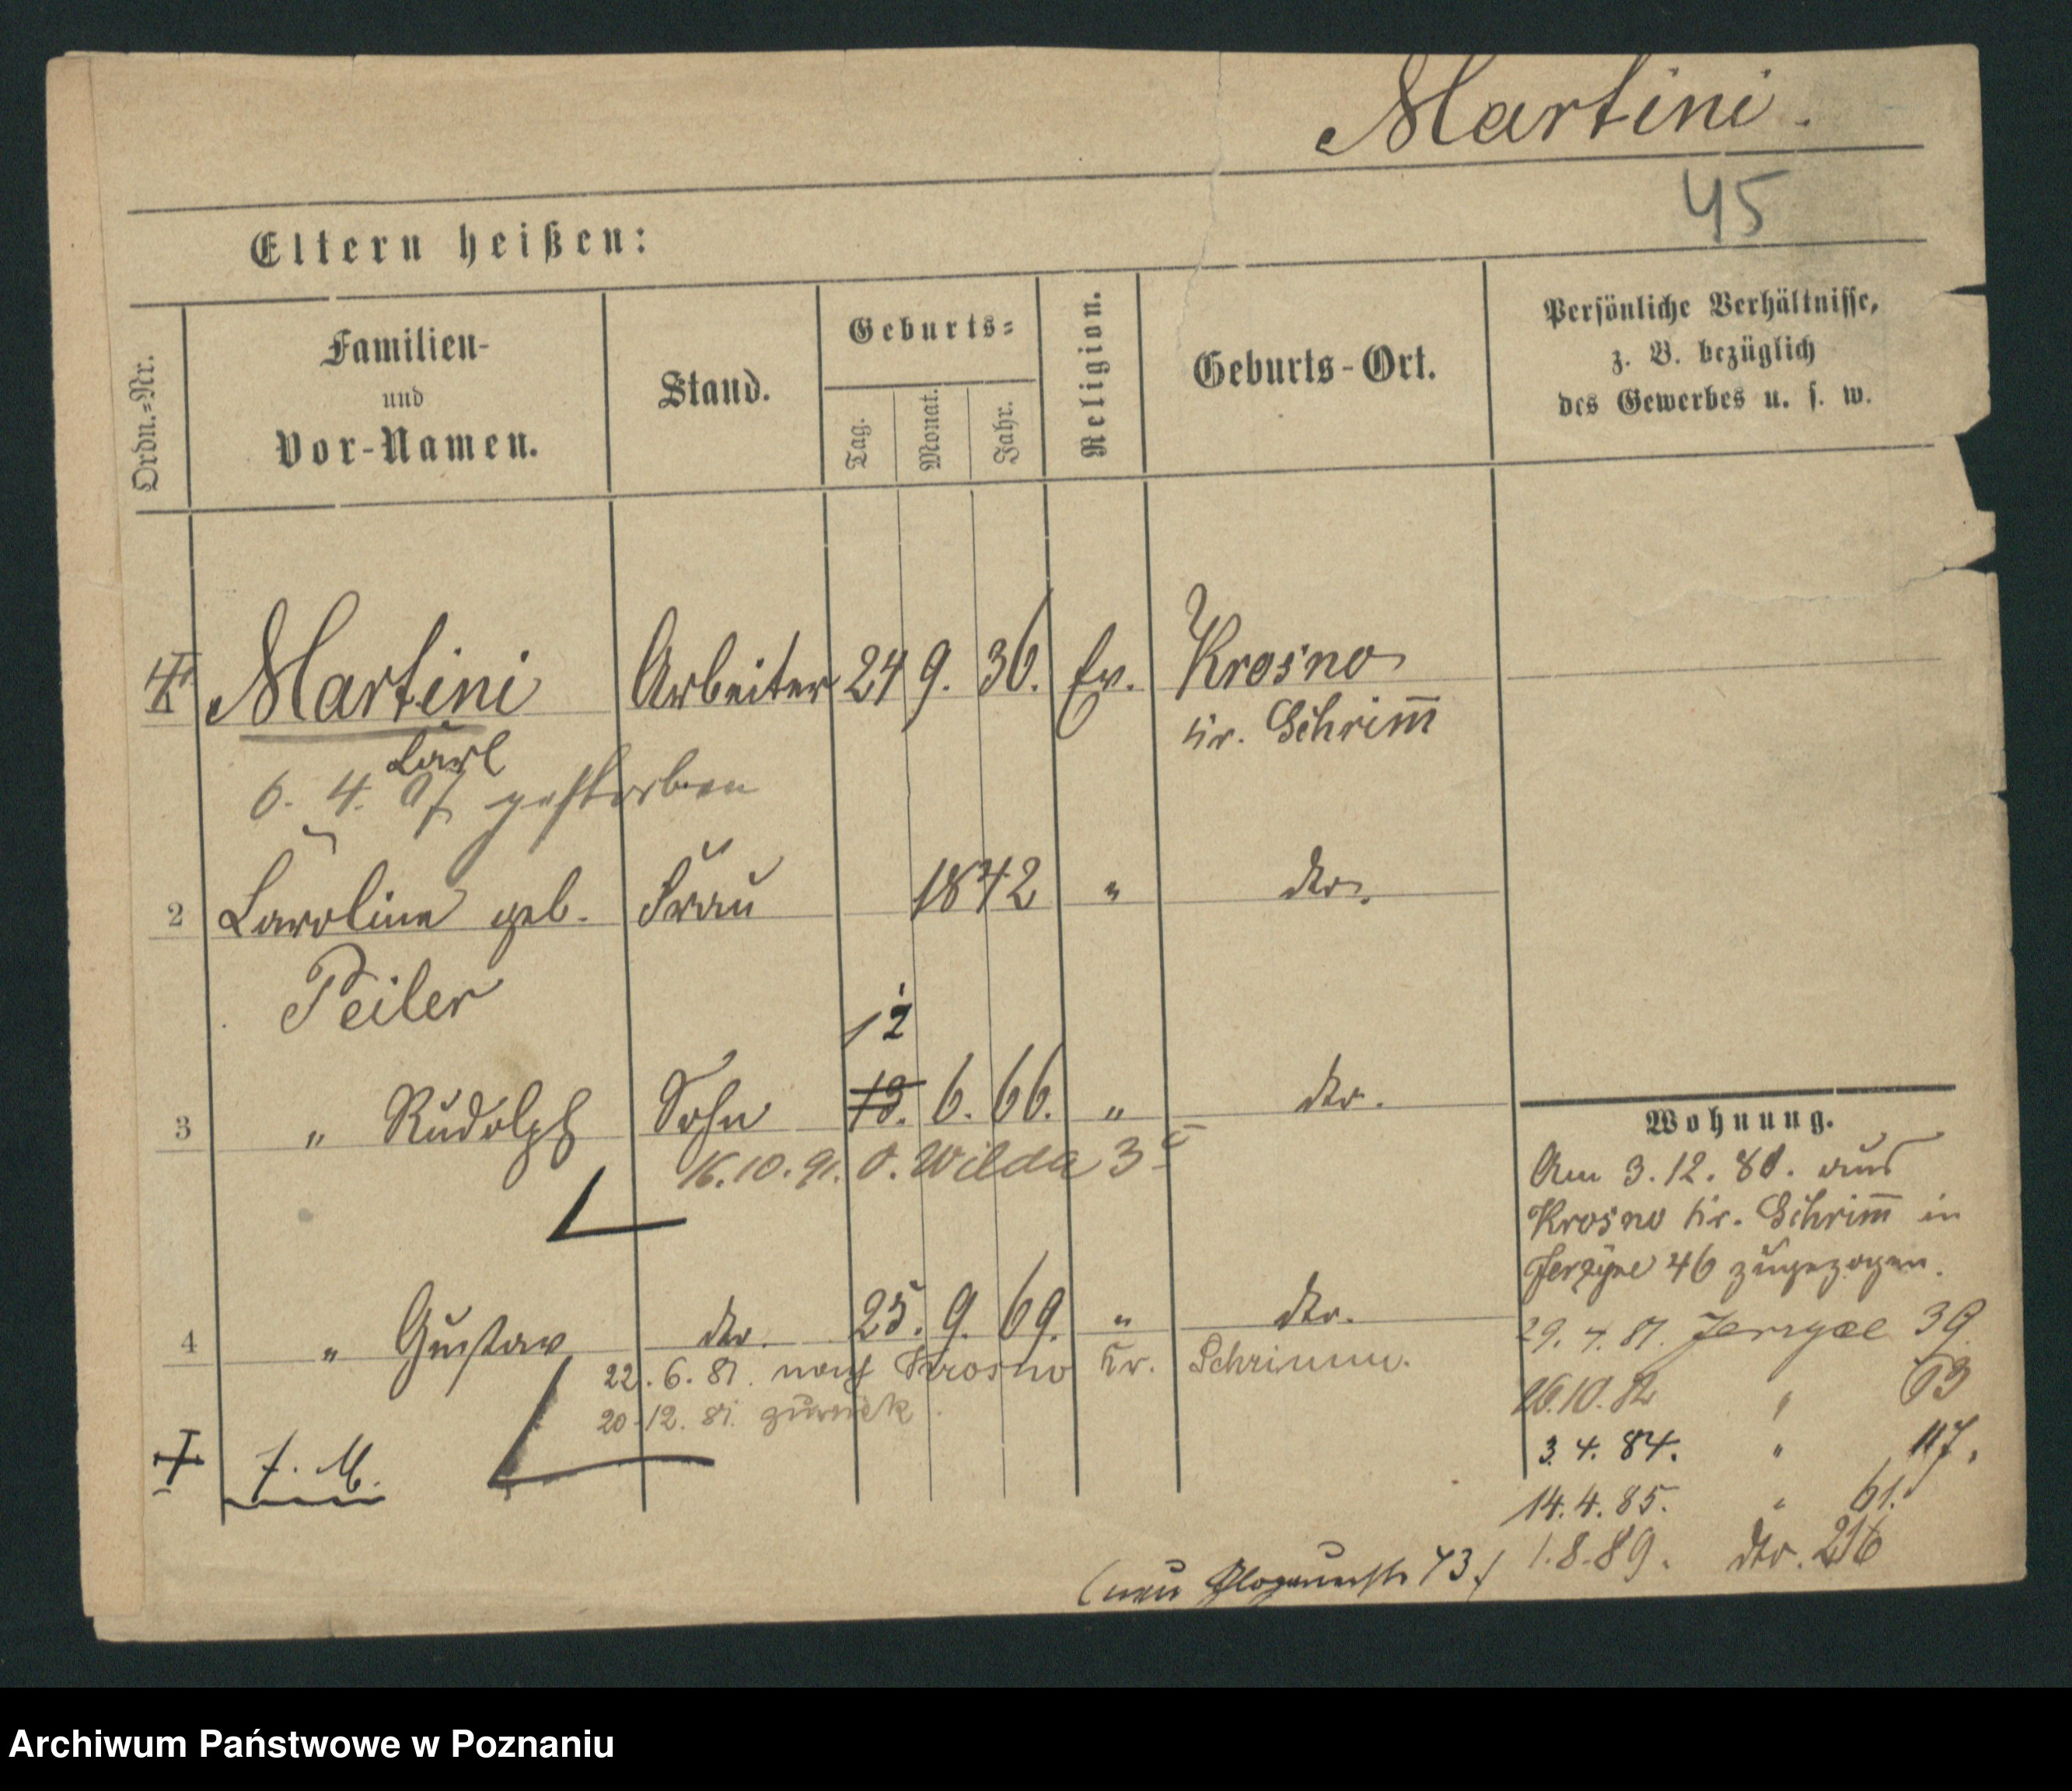 Martini.
45
Eltern heißen:
Ordn.=Nr.
Familien-
und
Vor-Namen.
Stand.
Geburts=
Tag.
Monat.
Jahr.
Religion.
Geburts-Ort.
Persönliche Verhältnisse,
z. B. bezüglich
des Gewerbes u. s. w.
Martini Arbeiter 24 9. 36. Ev. Krosno
Carl Kr. Schrim̅
6. 4. 97 gestorben
2 Caroline geb. Frau 1842 " dto.
Peiler
12
3 " Rudolph Sohn 13. 6. 66. " dto.
16.10.91. O. Wilda 3
4 " Gustav dto. 25. 9. 69. " dto.
22.6.81. nach Krosno Kr. Schrimm.
20.12.81. zurück.
Wohnung.
Am 3.12.80. aus
Krosno Kr. Schrim̅ in
Jerzyce 46 zugezogen.
29.4.81. Jerzyce 39
26.10.82 " 63
3.4.84. " 117.
14.4.85. " 61.
1.8.89. dto. 216
(neu Glogauerstr 73.)
Archiwum Państwowe w Poznaniu